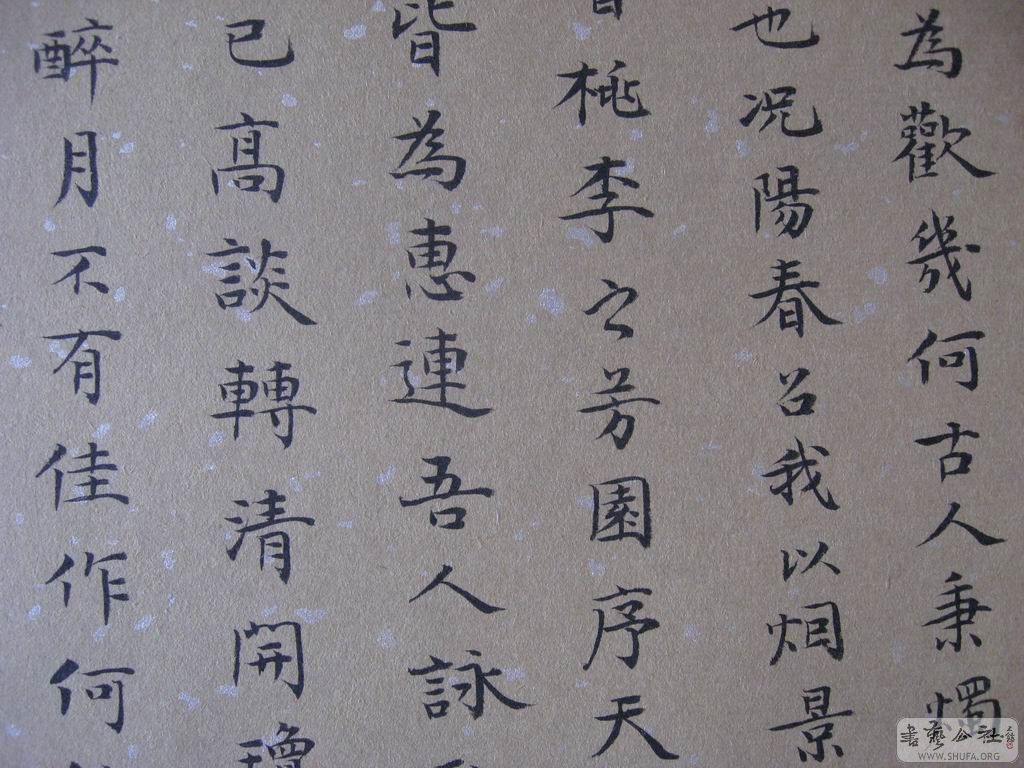 為歡幾何古人秉燭
也況陽春召我以烟景
桃李之芳園序天
皆為惠連吾人詠
已高談轉清開瓊
醉月不有佳作何
書藝公社
WWW.SHUFA.ORG